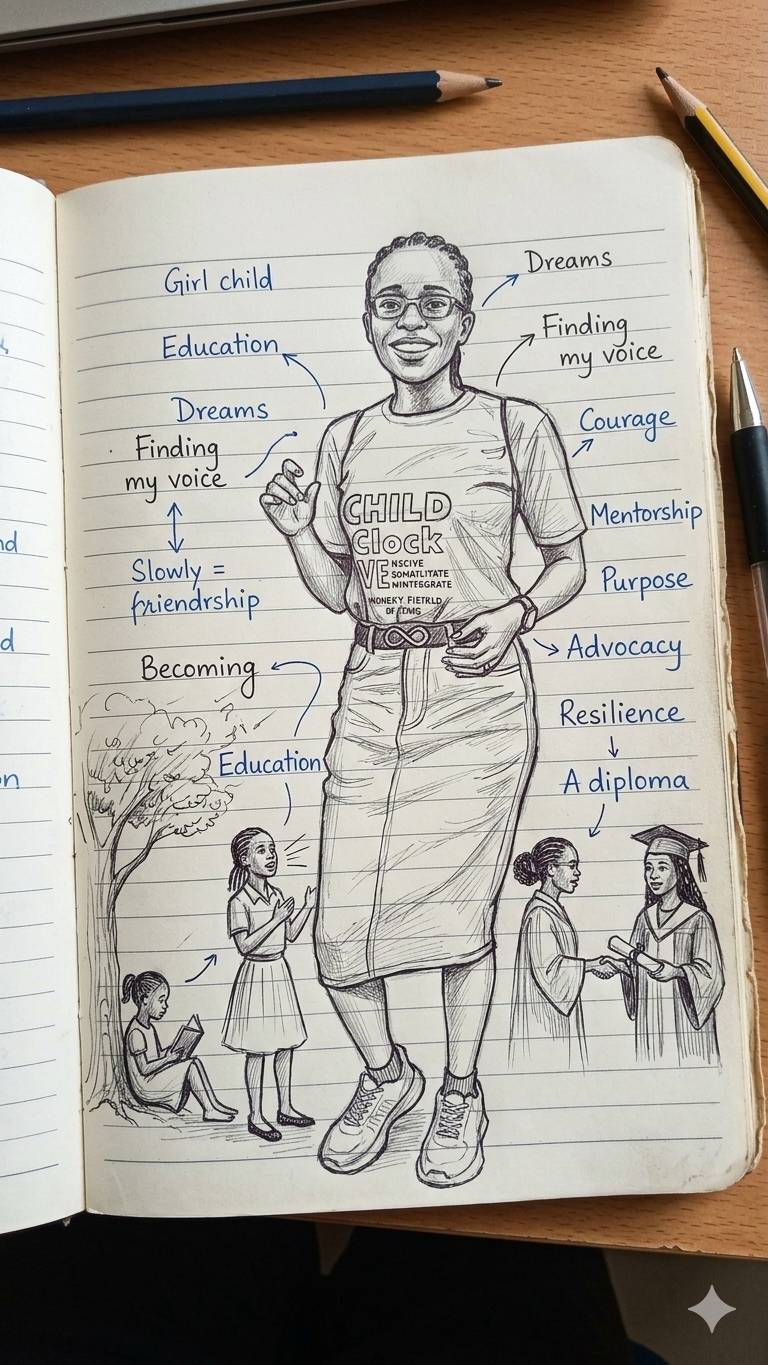 Girl child
Education
Dreams
Finding
my voice
Slowly =
friendrship
Becoming
Education
CHILD
Clock
VE
NSCIVE
SOMATLITATE
NINTEGRATE
WONEKY FIETRLD
Dreams
Finding
my voice
Courage
Mentorship
Purpose
Advocacy
Resilience
A diploma
nd
d
on